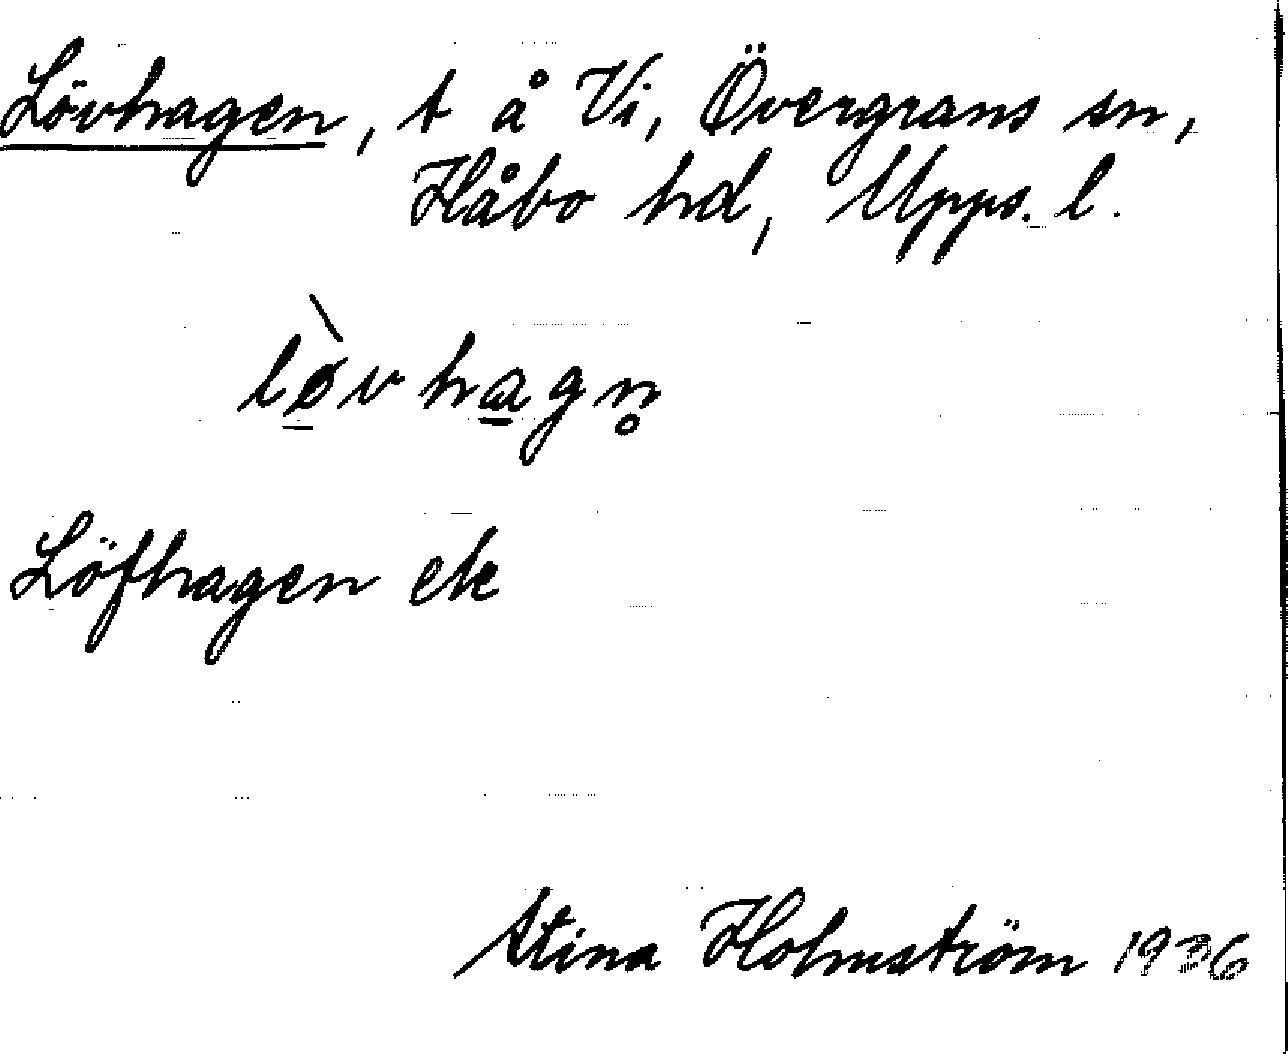 Lövhagen, t å Vi, Övergrans sn,
Håbo hd, Upps. l.
lø̀vhagn̥
Löfhagen ek
Stina Holmström 1936